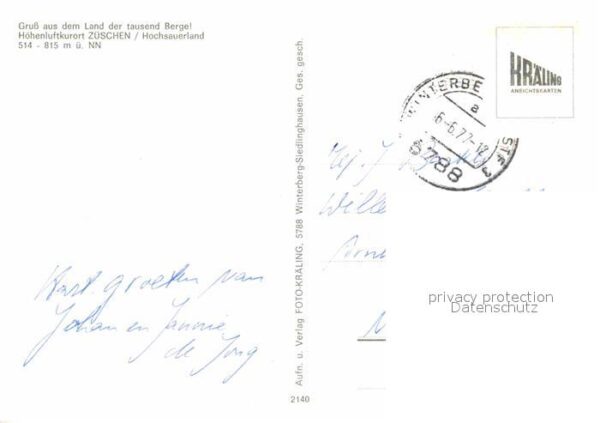 Gruß aus dem Land der tausend Berge!
Höhenluftkurort ZÜSCHEN / Hochsauerland
514 - 815 m ü. NN
KRÄLING
ANSICHTSKARTEN
WINTERBE STF 3
a
6-6.77-12
5788
Wille
privacy protection
Datenschutz
Hart. groeten van
Johan en Jannie
de Jong
Aufn. u. Verlag FOTO-KRÄLING, 5788 Winterberg-Siedlinghausen, Ges. gesch.
2140